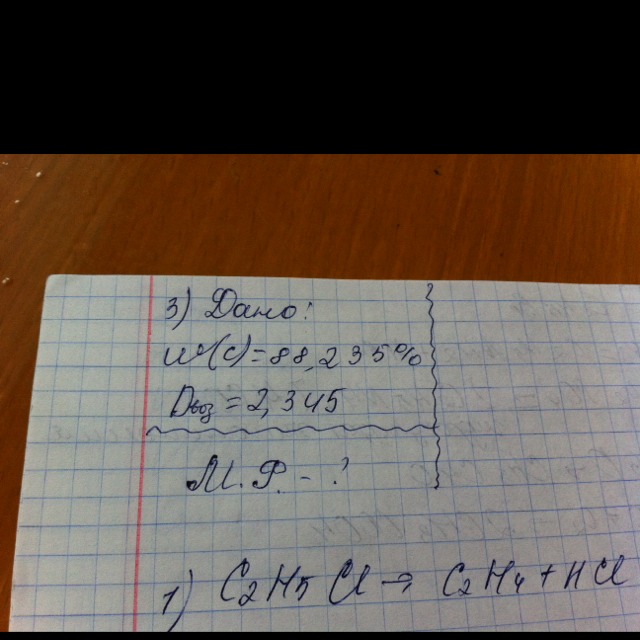 3) Дано:
W(C)=88,235%
Dвоз=2,345
М.Ф. - ?
1) C2H5Cl → C2H4 + HCl